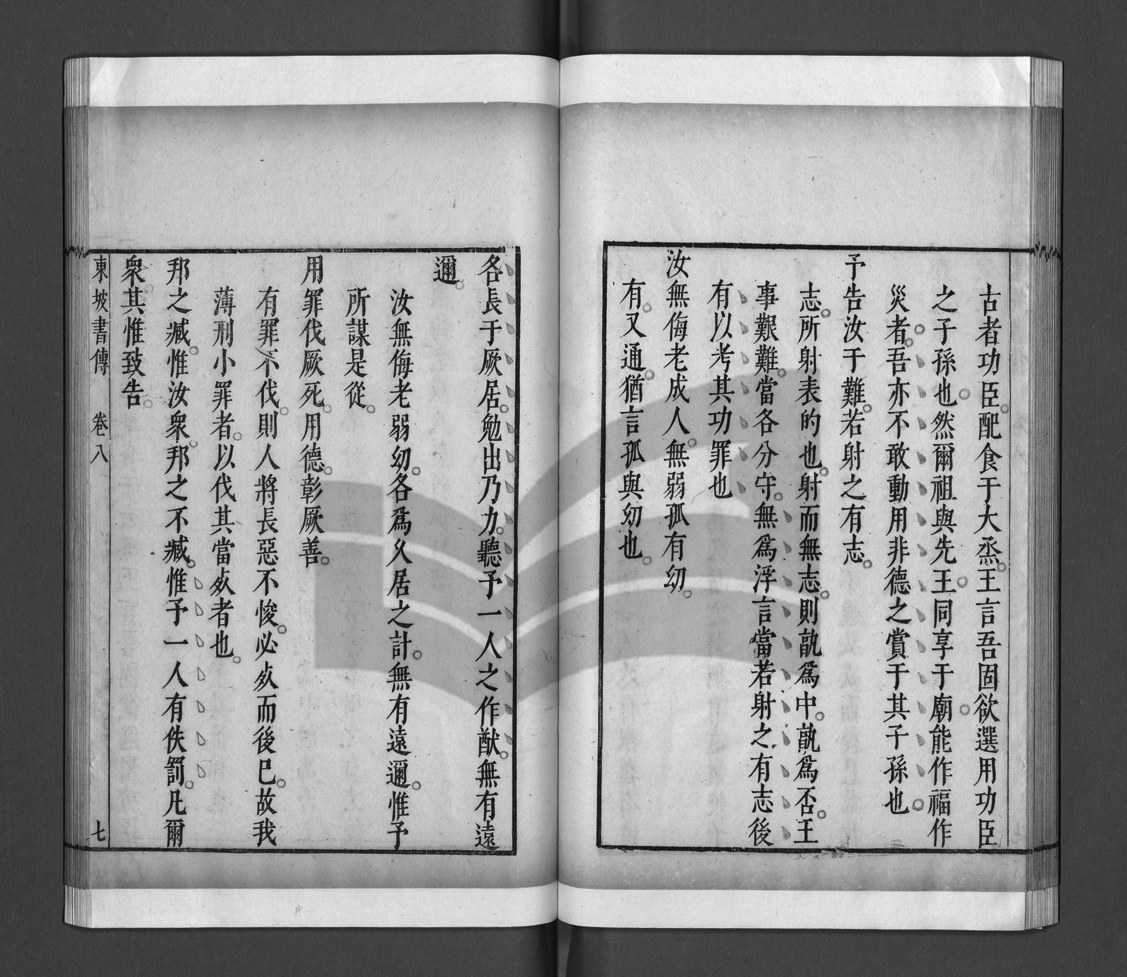 古者功臣配食于大烝王言吾固欲選用功臣
之子孫也然爾祖與先王同享于廟能作福作
災者吾亦不敢動用非德之賞于其子孫也
予告汝于難若射之有志
志所射表的也射而無志則孰爲中孰爲否王
事艱難當各分守無爲浮言當若射之有志後
有以考其功罪也
汝無侮老成人無弱孤有幼
有又通猶言孤與幼也
各長于厥居勉出乃力聽予一人之作猷無有遠
邇
汝無侮老弱幼各爲久居之計無有遠邇惟予
所謀是從
用罪伐厥死用德彰厥善
有罪不伐則人將長惡不悛必死而後已故我
薄刑小罪者以伐其當死者也
邦之臧惟汝衆邦之不臧惟予一人有佚罰凡爾
衆其惟致告
東坡書傳 卷八 七